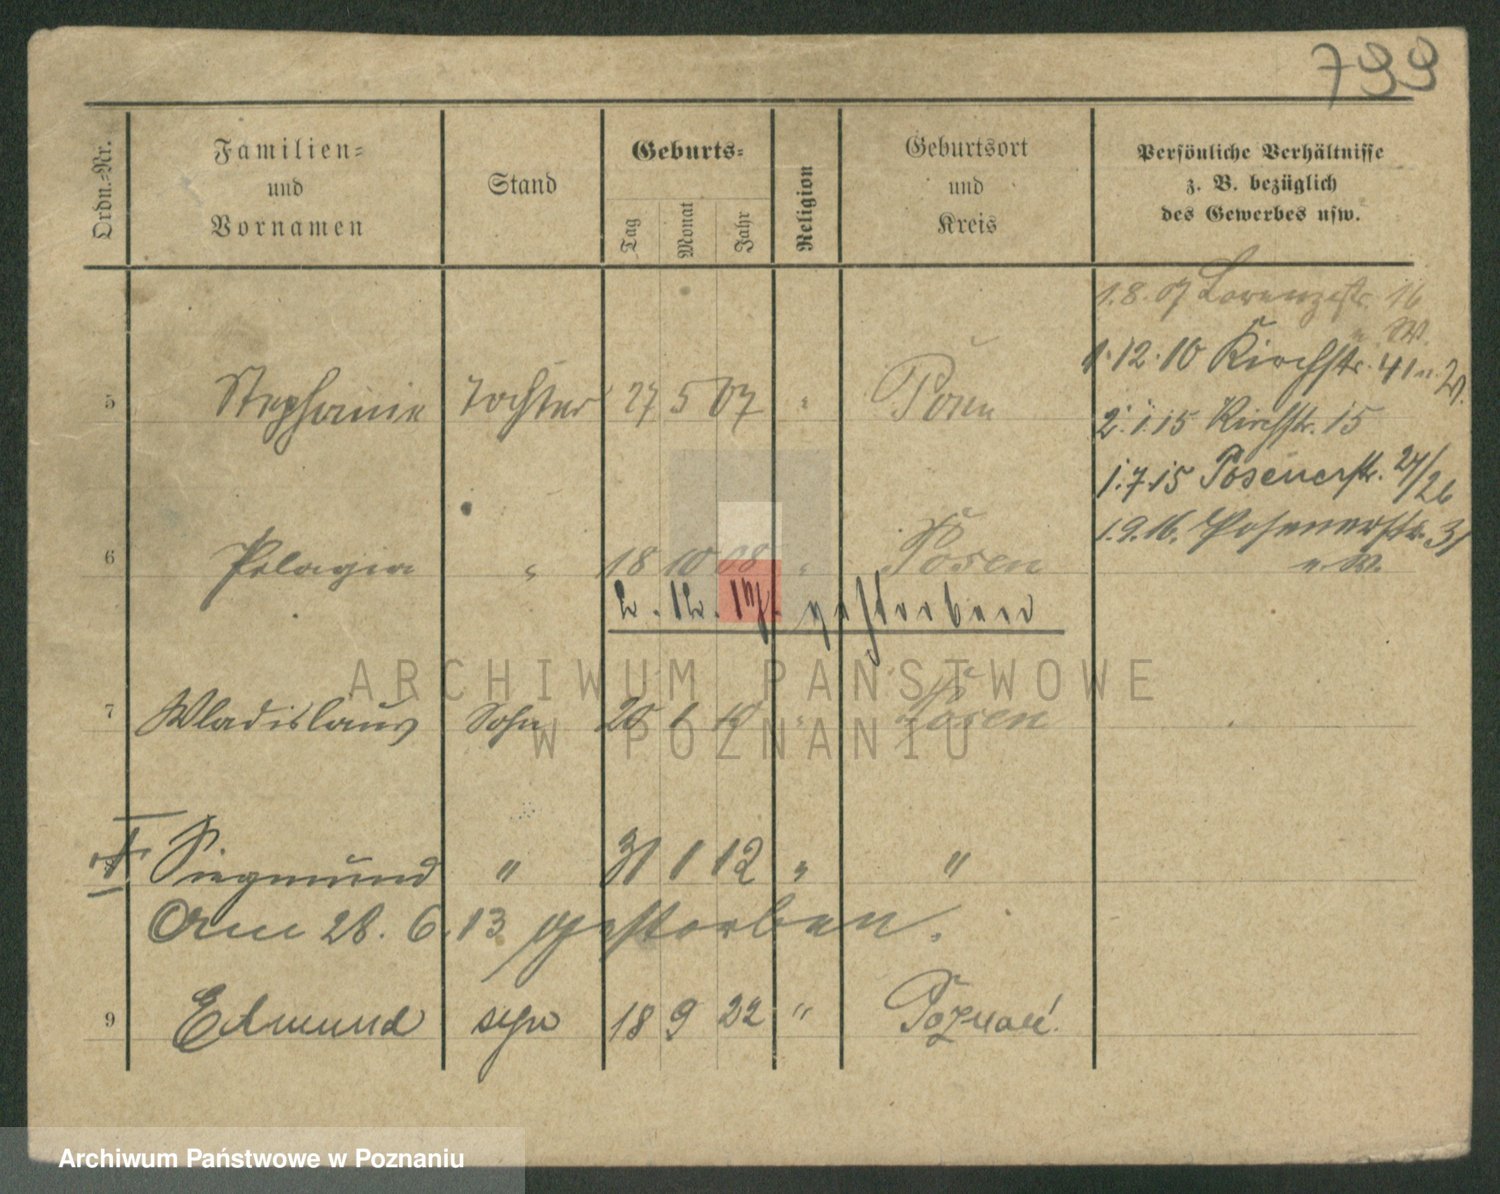 799
Ordn.-Nr.
Familien-
und
Vornamen
Stand
Geburts-
Tag
Monat
Jahr
Religion
Geburtsort
und
Kreis
Persönliche Verhältnisse
z. B. bezüglich
des Gewerbes usw.
1.8.07 Lorenzstr. 16
u. W.
1.12.10 Kirchstr. 41 u. W.
2.1.15 Kirchstr. 15
1.7.15 Posenerstr. 24/26
1.9.16. Posenerstr. 31
u. W.
5 Stephanie Tochter 27 5 07 " Posen
6 Pelagia " 18 10 08 " Posen
2. 12. gestorben
7 Wladislaus Sohn 26 1 10 " Posen
Siegmund " 31 1 12 " "
Am 28. 6. 13 gestorben.
9 Edmund syn 18 9 22 " Poznań
ARCHIWUM PAŃSTWOWE
W POZNANIU
Archiwum Państwowe w Poznaniu